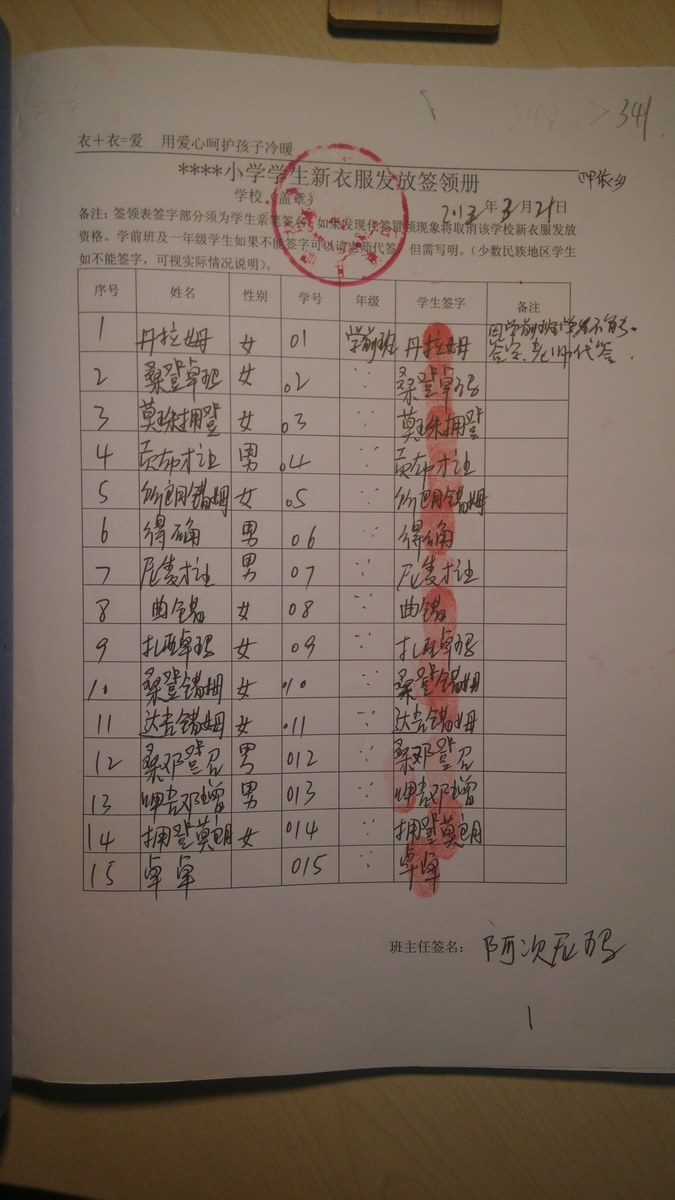 341
衣＋衣=爱 用爱心呵护孩子冷暖
****小学学生新衣服发放签领册
学校（盖章） 2013年3月21日
备注：签领表签字部分须为学生亲笔签名，如果发现代签冒领现象将取消该学校新衣服发放
资格。学前班及一年级学生如果不能签字可以请老师代签，但需写明。（少数民族地区学生
如不能签字，可视实际情况说明）。
序号 姓名 性别 学号 年级 学生签字 备注
1 丹拉姆 女 01 学前班 丹拉姆 因学前班学生不能签字，老师代签．
2 桑登卓玛 女 02 桑登卓玛
3 莫珠拥登 女 03 莫珠拥登
4 贡布才让 男 04 贡布才让
5 女 05
6 得确 男 06 得确
7 尼麦才让 男 07 尼麦才让
8 曲错 女 08 曲错
9 扎西卓玛 女 09 扎西卓玛
10 桑登错姆 女 10 桑登错姆
11 达吉错姆 女 011 达吉错姆
12 桑邓登 男 012 桑邓登
13 呷吉邓增 男 013 呷吉邓增
14 拥登莫朗 女 014 拥登莫朗
15 卓卓 015 卓卓
班主任签名： 阿次尼玛
1